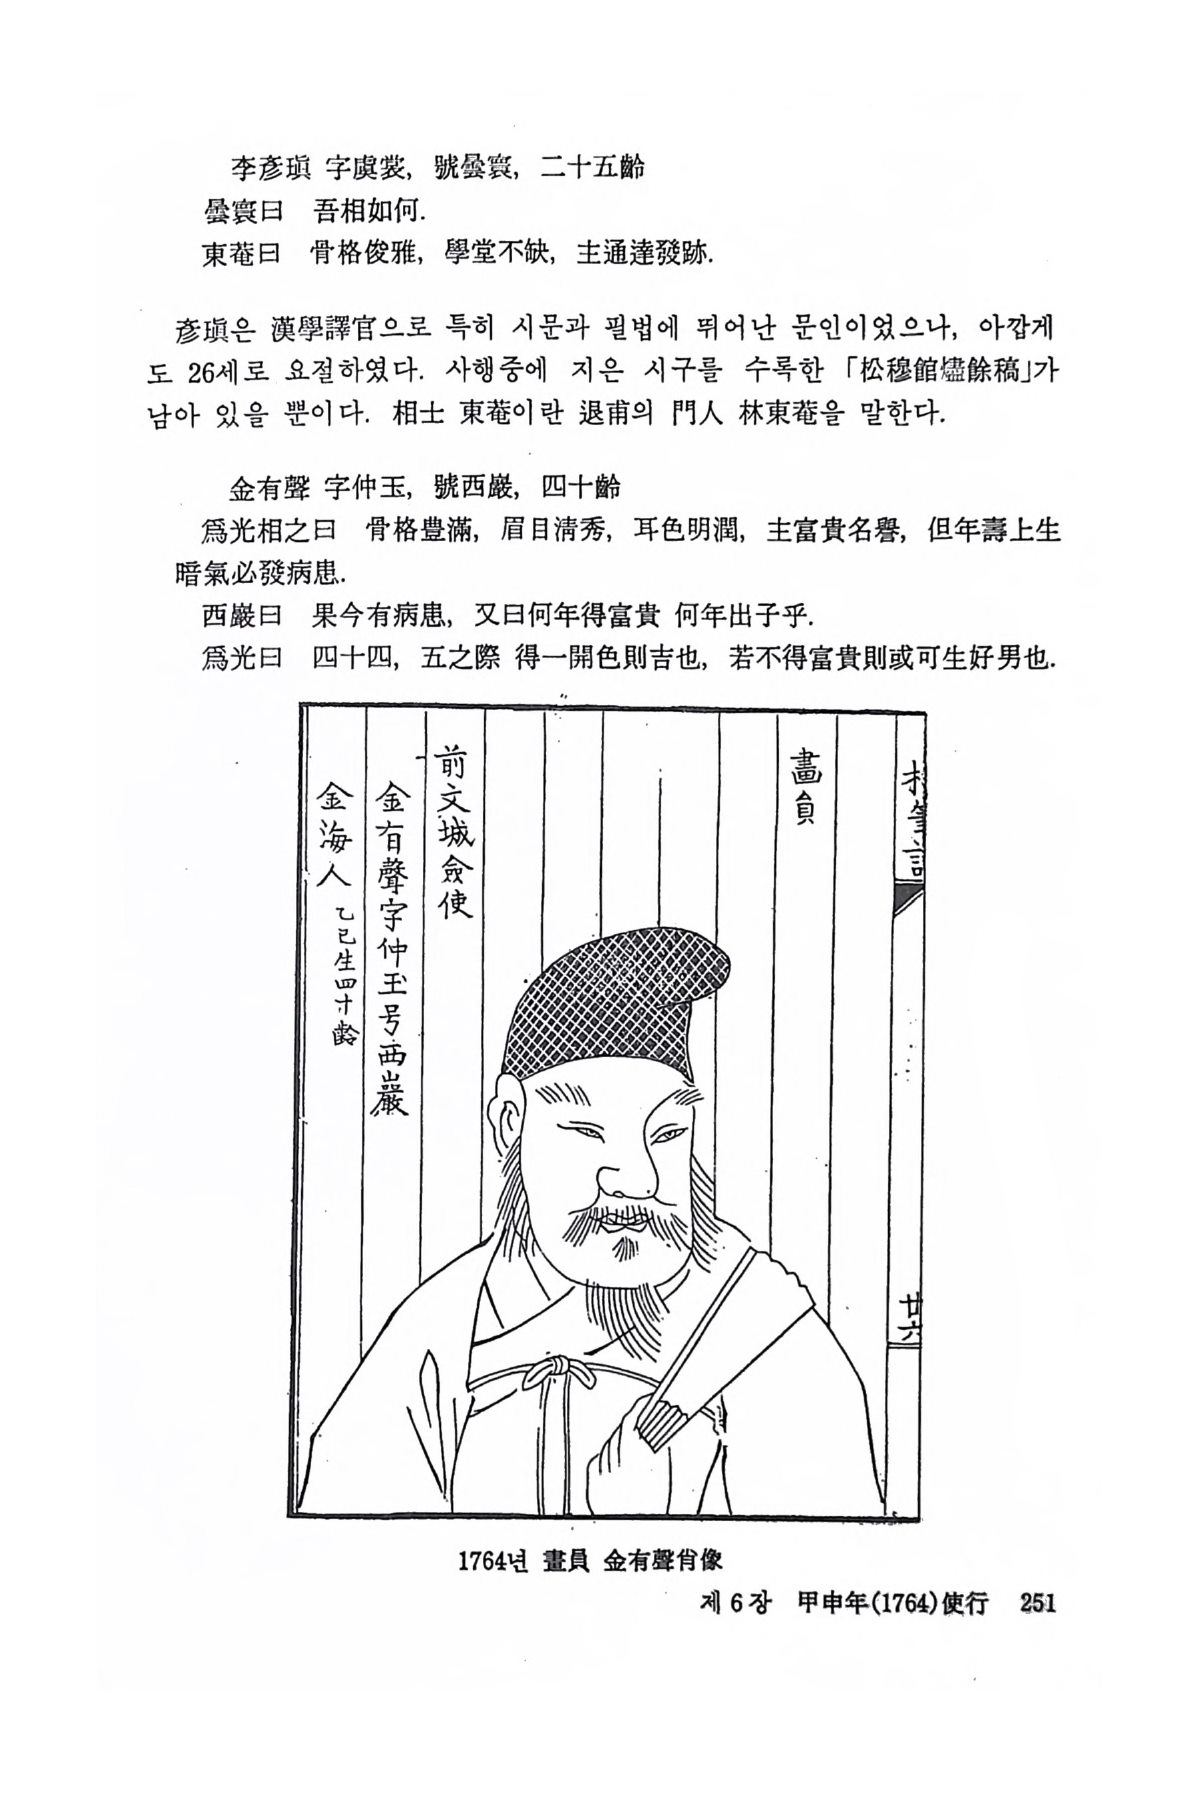 李彥瑱 字虞裳, 號曇寰, 二十五齡
曇寰曰 吾相如何.
東菴曰 骨格俊雅, 學堂不缺, 主通達發跡.
彥瑱은 漢學譯官으로 특히 시문과 필법에 뛰어난 문인이었으나, 아깝게
도 26세로 요절하였다. 사행중에 지은 시구를 수록한 「松穆館燼餘稿」가
남아 있을 뿐이다. 相士 東菴이란 退甫의 門人 林東菴을 말한다.
金有聲 字仲玉, 號西巖, 四十齡
爲光相之曰 骨格豊滿, 眉目淸秀, 耳色明潤, 主富貴名譽, 但年壽上生
暗氣必發病患.
西巖曰 果今有病患, 又曰何年得富貴 何年出子乎.
爲光曰 四十四, 五之際 得一開色則吉也, 若不得富貴則或可生好男也.
筆記
廿六
畵員
前文城僉使
金有聲字仲玉号西巖
金海人 乙巳生四十齡
1764년 畫員 金有聲肖像
제 6 장 甲申年(1764)使行 251